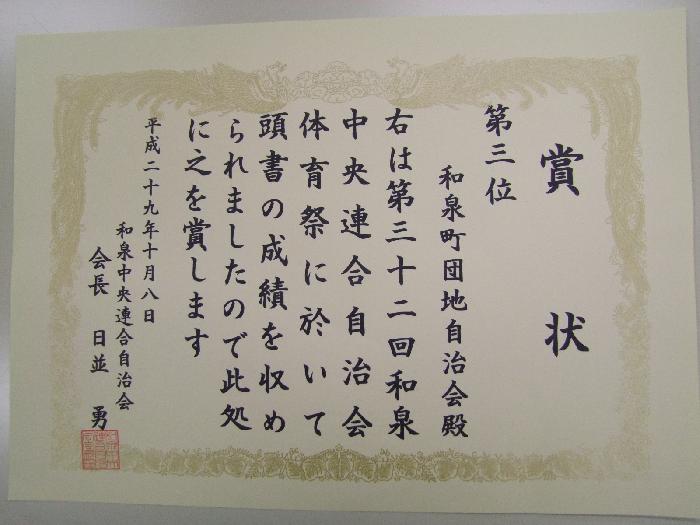 賞状
第三位
和泉町団地自治会殿
右は第三十二回和泉
中央連合自治会
体育祭に於いて
頭書の成績を収め
られましたので此処
に之を賞します
平成二十九年十月八日
和泉中央連合自治会
会長 日並 勇